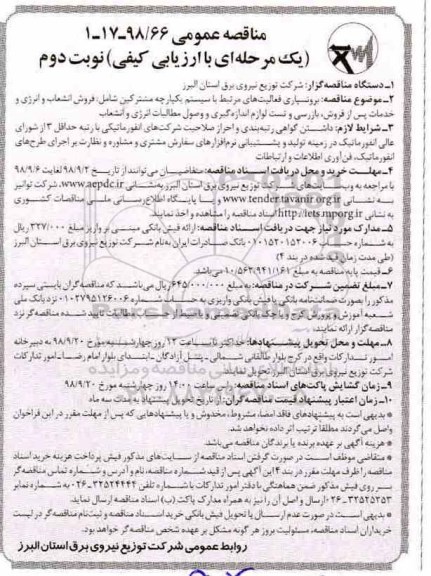 مناقصه عمومی ۹۸/۶۶-۱۷-۱
(یک مرحله‌ای با ارزیابی کیفی) نوبت دوم
۱ـ دستگاه مناقصه‌گزار: شرکت توزیع نیروی برق استان البرز
۲ـ موضوع مناقصه: برونسپاری فعالیت‌های مرتبط با سیستم یکپارچه مشترکین شامل: فروش انشعاب و انرژی و
خدمات پس از فروش، بازرسی و تست لوازم اندازه‌گیری و وصول مطالبات انرژی و انشعاب
۳ـ شرایط لازم: داشتن گواهی رتبه‌بندی و احراز صلاحیت شرکت‌های انفورماتیکی با رتبه حداقل ۳ از شورای
عالی انفورماتیک در زمینه تولید و پشتیبانی نرم‌افزارهای سفارش مشتری و مشاوره و نظارت بر اجرای طرح‌های
انفورماتیک، فن‌آوری اطلاعات و ارتباطات
۴ـ مهلت خرید و محل دریافت اسناد مناقصه: متقاضیان می‌توانند از تاریخ ۹۸/۹/۲ لغایت ۹۸/۹/۶
با مراجعه به وب‌سایت‌های شرکت توزیع نیروی برق استان البرز به‌نشانی www.aepdc.ir، شرکت توانیر
به نشانی www.tender.tavanir.org.ir و یا پایگاه اطلاع‌رسانی ملی مناقصات کشوری
به نشانی http://iets.mporg.ir اسناد مناقصه را مشاهده و اخذ نمایند.
۵ـ مدارک مورد نیاز جهت دریافت اسناد مناقصه: ارائه فیش بانکی مبنی بر واریز مبلغ ۳۲۷/۰۰۰ ریال
به شماره حساب ۰۱۰۱۵۲۰۱۵۲۰۰۶ بانک صادرات ایران به‌نام شرکت توزیع نیروی برق استان البرز
(طی مدت زمان قید شده در بند ۴)
۶ـ قیمت پایه مناقصه به مبلغ ۱۰/۵۶۲/۹۴۱/۱۶۱ می‌باشد.
۷ـ مبلغ تضمین شرکت در مناقصه: به مبلغ ۶۴۵/۰۰۰/۰۰۰ ریال می‌باشد که مناقصه‌گران بایستی سپرده
مذکور را بصورت ضمانت‌نامه بانکی یا فیش بانکی واریزی به حساب شماره ۰۱۰۲۷۹۵۱۲۶۰۰۶ نزد بانک ملی
شعبه آموزش و پرورش کرج و یا چک بانکی تضمینی و یا ضبط از محل مطالبات تایید شده مناقصه‌گر نزد
مناقصه گزار ارائه نمایند.
۸ـ مهلت و محل تحویل پیشنهادها: حداکثر تا ساعت ۱۲ روز چهارشنبه مورخ ۹۸/۹/۲۰ به دبیرخانه
امور تدارکات واقع در کرج بلوار طالقانی شمالی ـ پشت آزادگان ـ ابتدای بلوار امام رضا ـ امور تدارکات
شرکت توزیع نیروی برق استان البرز تحویل نمایند.
۹ـ زمان گشایش پاکت‌های اسناد مناقصه: راس ساعت ۱۴:۰۰ روز چهارشنبه مورخ ۹۸/۹/۲۰
۱۰ـ زمان اعتبار پیشنهاد قیمت مناقصه‌گران: از تاریخ تحویل پیشنهاد به مدت سه ماه
* بدیهی است به پیشنهادهای فاقد امضا، مشروط، مخدوش و یا پیشنهادهایی که پس از مهلت مقرر در این فراخوان
واصل می‌گردند مطلقا ترتیب اثر داده نخواهد شد.
* هزینه آگهی بر عهده برنده یا برندگان مناقصه می‌باشد.
* متقاضی موظف است در صورت گرفتن اسناد مناقصه از سایت‌های مذکور فیش پرداخت هزینه خرید اسناد
مناقصه را ظرف مهلت مقرر در بند ۴ این آگهی پس از قید شماره مناقصه، نام و آدرس و شماره تماس مناقصه‌گر
بر روی فیش مذکور ضمن هماهنگی با دفتر امور تدارکات با شماره تلفن ۳۲۵۲۴۴۴۴-۰۲۶ به شماره نمابر
۳۲۵۲۵۳۵۳-۰۲۶ ارسال و اصل آن را نیز به همراه مدارک پاکت (ب) اسناد مناقصه ارسال نماید.
* بدیهی است در صورت عدم ارسال یا تحویل فیش بانکی خرید اسناد مناقصه و ثبت‌نام مناقصه‌گر در لیست
خریداران اسناد مناقصه، مسئولیت بروز هر گونه مشکل بر عهده شخص مناقصه‌گر خواهد بود.
روابط عمومی شرکت توزیع نیروی برق استان البرز